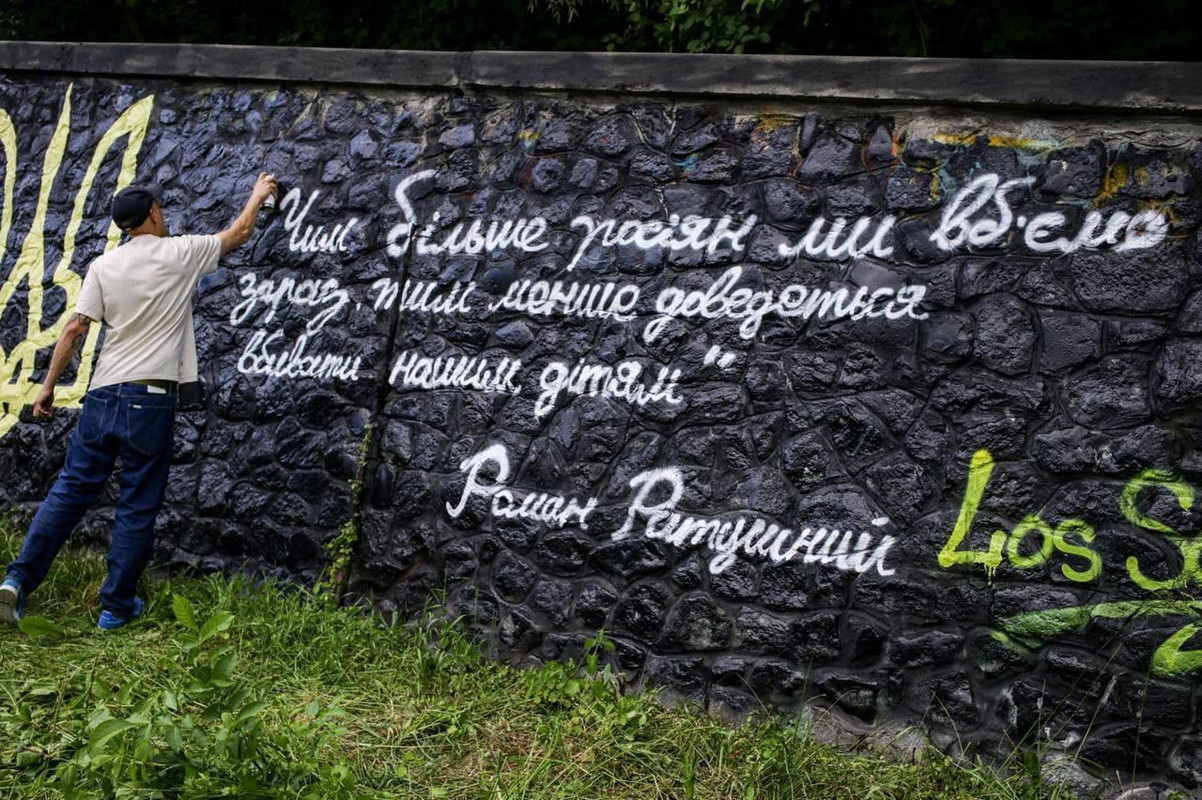 Чим більше росіян ми вб'ємо
зараз, тим менше доведеться
вбивати нашим дітям"
Роман Ратушний
Los